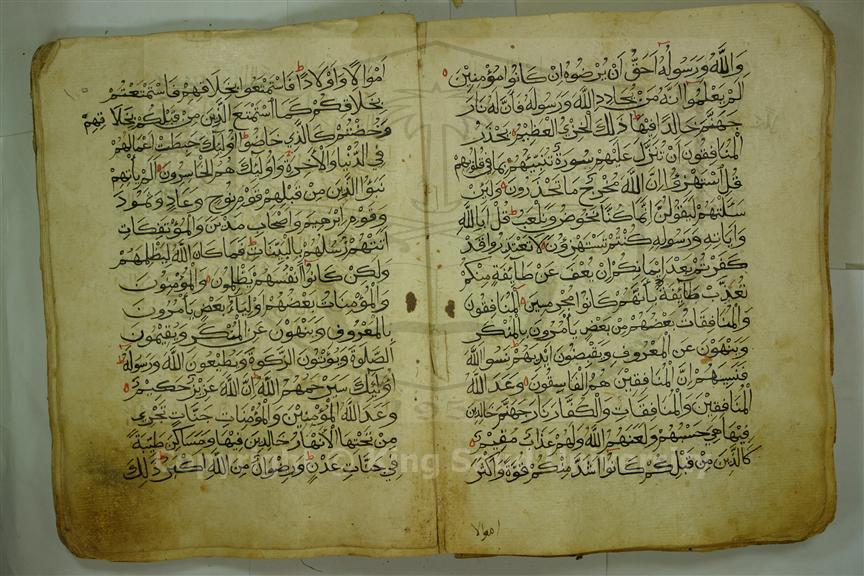 وَاللَّهُ وَرَسُولُهُ أَحَقُّ أَنْ يُرْضُوهُ إِنْ كَانُوا مُؤْمِنِينَ
أَلَمْ يَعْلَمُوا أَنَّهُ مَنْ يُحَادِدِ اللَّهَ وَرَسُولَهُ فَأَنَّ لَهُ نَارَ
جَهَنَّمَ خَالِدًا فِيهَا ذَلِكَ الْخِزْيُ الْعَظِيمُ يَحْذَرُ
الْمُنَافِقُونَ أَنْ تُنَزَّلَ عَلَيْهِمْ سُورَةٌ تُنَبِّئُهُمْ بِمَا فِي قُلُوبِهِمْ
قُلِ اسْتَهْزِئُوا إِنَّ اللَّهَ مُخْرِجٌ مَا تَحْذَرُونَ وَلَئِنْ
سَأَلْتَهُمْ لَيَقُولُنَّ إِنَّمَا كُنَّا نَخُوضُ وَنَلْعَبُ قُلْ أَبِاللَّهِ
وَآيَاتِهِ وَرَسُولِهِ كُنْتُمْ تَسْتَهْزِؤُنَ لَا تَعْتَذِرُوا قَدْ
كَفَرْتُمْ بَعْدَ إِيمَانِكُمْ إِنْ يُعْفَ عَنْ طَائِفَةٍ مِنْكُمْ
تُعَذَّبْ طَائِفَةٌ بِأَنَّهُمْ كَانُوا مُجْرِمِينَ الْمُنَافِقُونَ
وَالْمُنَافِقَاتُ بَعْضُهُمْ مِنْ بَعْضٍ يَأْمُرُونَ بِالْمُنْكَرِ
وَيَنْهَوْنَ عَنِ الْمَعْرُوفِ وَيَقْبِضُونَ أَيْدِيَهُمْ نَسُوا اللَّهَ
فَنَسِيَهُمْ إِنَّ الْمُنَافِقِينَ هُمُ الْفَاسِقُونَ وَعَدَ اللَّهُ
الْمُنَافِقِينَ وَالْمُنَافِقَاتِ وَالْكُفَّارَ نَارَ جَهَنَّمَ خَالِدِينَ
فِيهَا هِيَ حَسْبُهُمْ وَلَعَنَهُمُ اللَّهُ وَلَهُمْ عَذَابٌ مُقِيمٌ
كَالَّذِينَ مِنْ قَبْلِكُمْ كَانُوا أَشَدَّ مِنْكُمْ قُوَّةً وَأَكْثَرَ
اموالا
أَمْوَالًا وَأَوْلَادًا فَاسْتَمْتَعُوا بِخَلَاقِهِمْ فَاسْتَمْتَعْتُمْ
بِخَلَاقِكُمْ كَمَا اسْتَمْتَعَ الَّذِينَ مِنْ قَبْلِكُمْ بِخَلَاقِهِمْ
وَخُضْتُمْ كَالَّذِي خَاضُوا أُولَئِكَ حَبِطَتْ أَعْمَالُهُمْ
فِي الدُّنْيَا وَالْآخِرَةِ وَأُولَئِكَ هُمُ الْخَاسِرُونَ أَلَمْ يَأْتِهِمْ
نَبَؤُا الَّذِينَ مِنْ قَبْلِهِمْ قَوْمِ نُوحٍ وَعَادٍ وَثَمُودَ
وَقَوْمِ إِبْرَهِيمَ وَأَصْحَابِ مَدْيَنَ وَالْمُؤْتَفِكَاتِ
أَتَتْهُمْ رُسُلُهُمْ بِالْبَيِّنَاتِ فَمَا كَانَ اللَّهُ لِيَظْلِمَهُمْ
وَلَكِنْ كَانُوا أَنْفُسَهُمْ يَظْلِمُونَ وَالْمُؤْمِنُونَ
وَالْمُؤْمِنَاتُ بَعْضُهُمْ أَوْلِيَاءُ بَعْضٍ يَأْمُرُونَ
بِالْمَعْرُوفِ وَيَنْهَوْنَ عَنِ الْمُنْكَرِ وَيُقِيمُونَ
الصَّلَوةَ وَيُؤْتُونَ الزَّكَوةَ وَيُطِيعُونَ اللَّهَ وَرَسُولَهُ
أُولَئِكَ سَيَرْحَمُهُمُ اللَّهُ إِنَّ اللَّهَ عَزِيزٌ حَكِيمٌ
وَعَدَ اللَّهُ الْمُؤْمِنِينَ وَالْمُؤْمِنَاتِ جَنَّاتٍ تَجْرِي
مِنْ تَحْتِهَا الْأَنْهَارُ خَالِدِينَ فِيهَا وَمَسَاكِنَ طَيِّبَةً
فِي جَنَّاتِ عَدْنٍ وَرِضْوَانٌ مِنَ اللَّهِ أَكْبَرُ ذَلِكَ
Copyright © King Saud University
1957